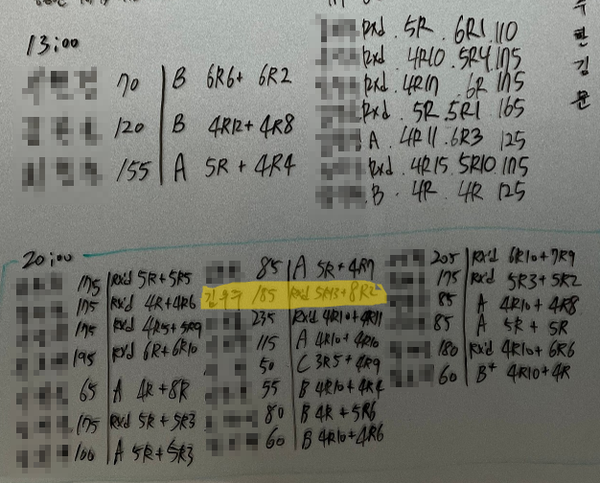 13:00
70 B 6R6 + 6R2
120 B 4R12 + 4R8
155 A 5R + 4R4
Rxd . 5R . 6R1 110
Rxd . 4R10 . 5R4 175
Rxd . 4R17 . 6R 175
Rxd . 5R . 5R1 165
A . 4R11 . 6R3 125
Rxd . 4R15 . 5R10 175
B . 4R . 4R 125
수
한
김
문
20:00
175 Rx'd 5R + 5R5
175 Rxd 4R + 4R6
175 Rx'd 4R5 + 5R9
195 Rx'd 6R + 6R10
65 A 4R + 8R
175 Rxd 5R + 5R3
100 A 5R + 5R3
85 A 5R + 4R7
185 Rxd 5R13 + 8R2
235 Rx'd 4R10 + 4R11
115 A 4R10 + 4R10
50 C 3R5 + 4R9
55 B 4R10 + 4R4
80 B 4R + 5R6
60 B 4R10 + 4R6
205 Rxd 6R10 + 7R9
175 Rx'd 5R3 + 5R2
85 A 4R10 + 4R8
85 A 5R + 5R
180 Rx'd 4R10 + 6R6
60 B+ 4R10 + 4R